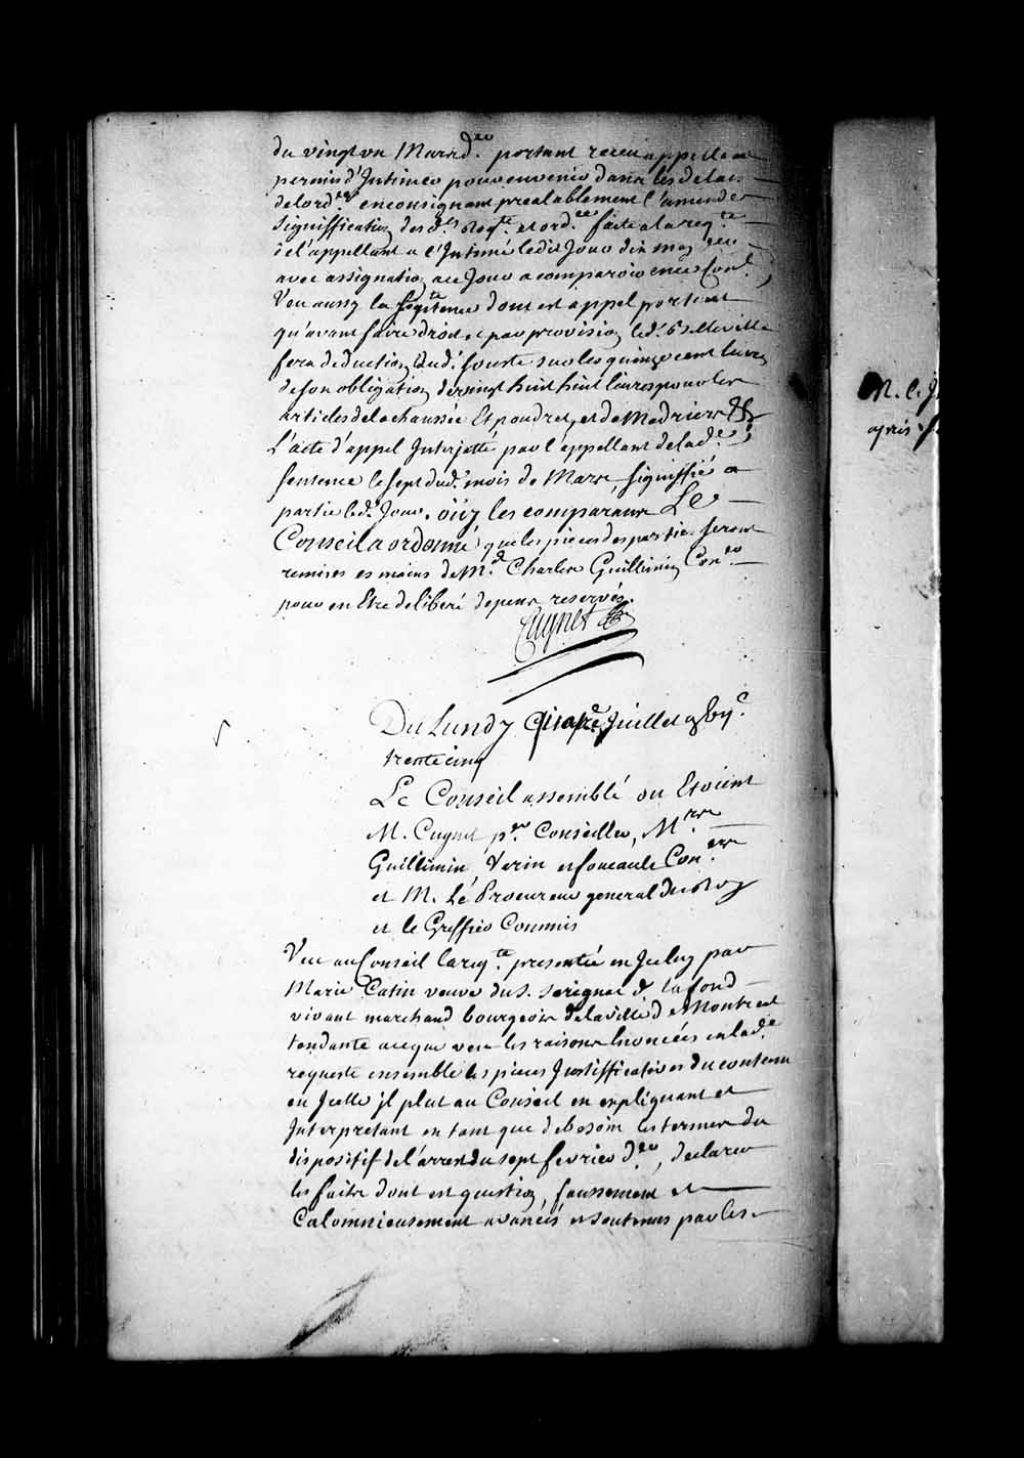 du vingt un Mars d.er portant receu appellant
permis d'Intimer pour en venir dans les delais
de l'ord.ce en consignant prealablement l'amende
signiffication des d.ts Req.te et ord.ce faite a la req.te
de l'appellant a l'Intimé led. Jour dix may
avec assignation au Jour a comparoir en ce Con.l
Veu aussy la sentence dont est appel portant
qu'avant faire droit, et par provision led. Sr
fera deduction aud. sur les quinze cent livres
de son obligation de vingt huit livres pour les
articles de la chaussée Et poudre, et de Madriers &c
L'acte d'appel Interjetté par l'appellant de lad.e
sentence le sept dud. mois de Mars, signiffié a
partie led. Jour. oüy les comparans Le
Conseil a ordonné que les pieces des parties seront
remises es mains de M.e Charles Guillimin Con.er
pour en Etre deliberé depens reservés.
Cugnet
Du Lundy Juillet
trente cinq
Le Conseil assemblé ou Etoient
M. Cugnet p.er Conseiller, M.rs
Guillimin, Varin et foucault Con.ers
et M. Le Procureur general du Roy
et le Greffier Commis
Veu au Conseil la req.te presentée en Iceluy par
Marie Catin veuve du S. serignac de lafond
vivant marchand bourgeois de la ville de Montreal
tendante a ce que veu les raisons Enoncées en lad.e
requeste ensemble les pieces Justifficatives du contenu
en Icelle jl plut au Conseil en expliquant et
Interpretant en tant que de besoin les termes du
dispositif de l'arrest du sept fevrier d.er, declarer
les faits dont est question, faussement et
Calomnieusement avancés et soutenus par les
M.
après